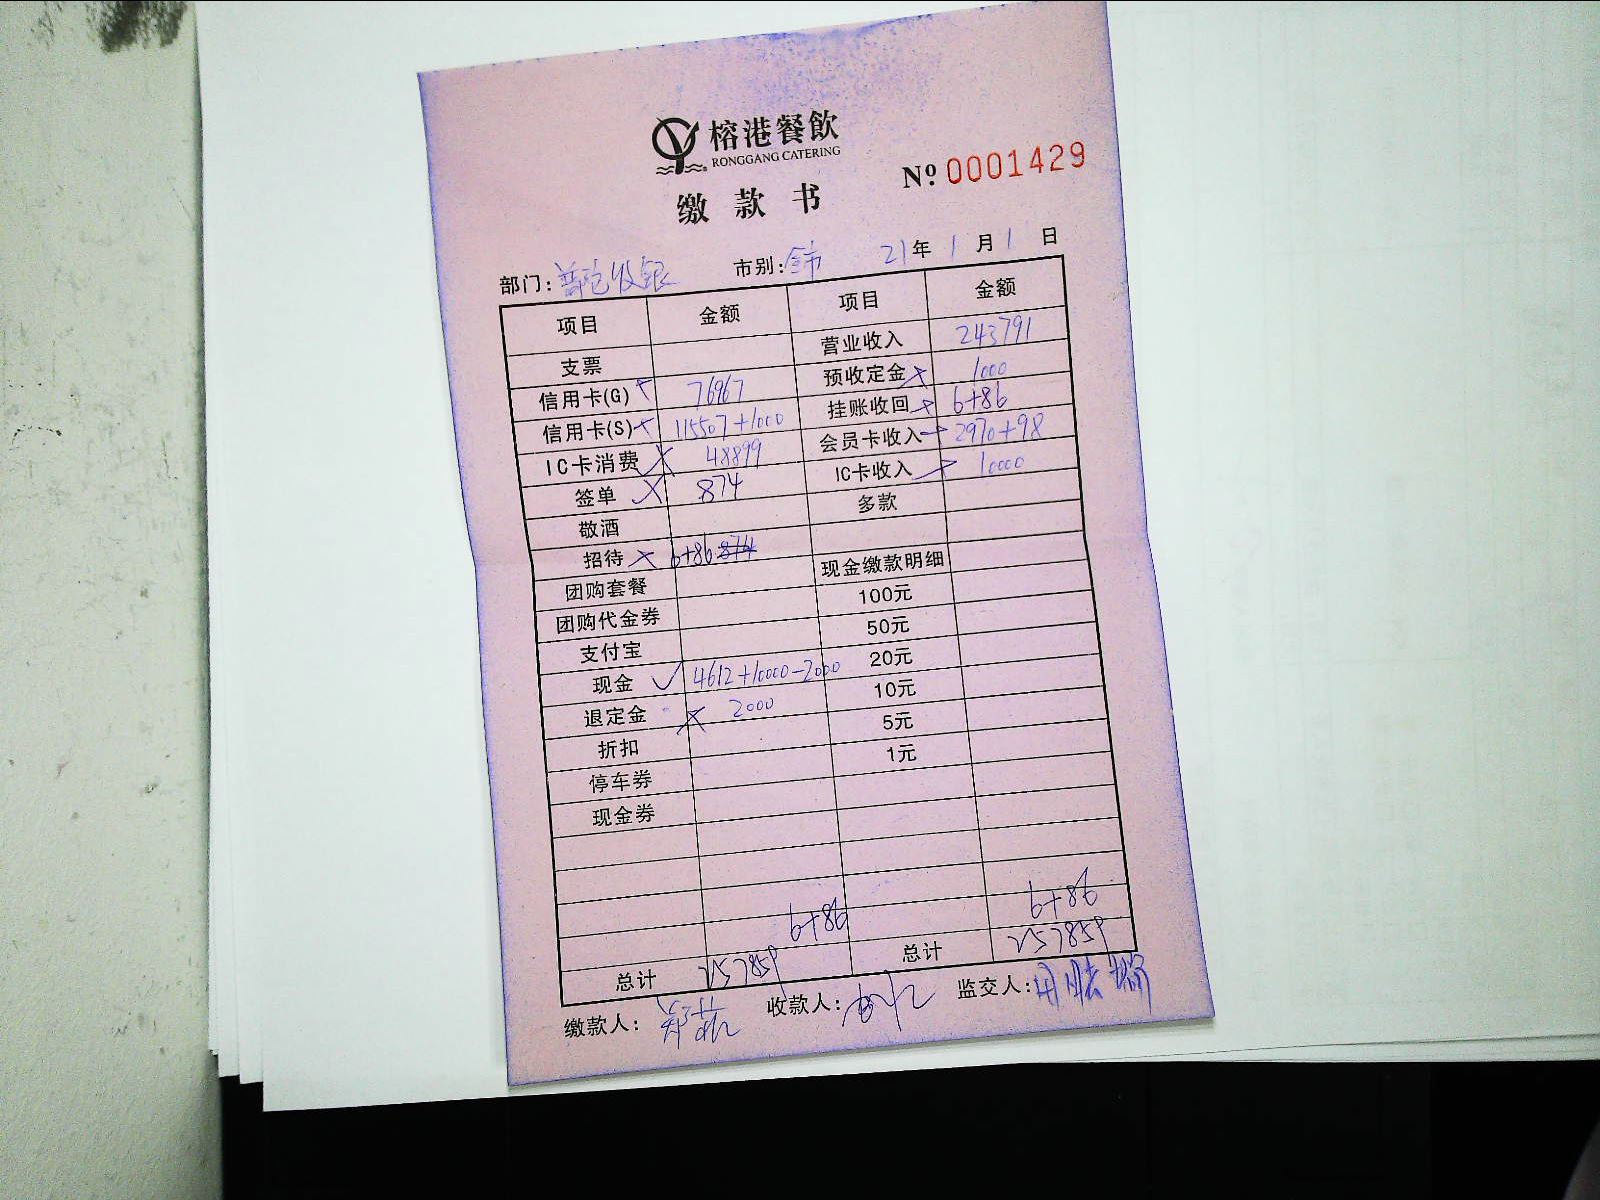 榕港餐飲
RONGGANG CATERING
缴款书
Nº 0001429
部门: 普陀收银 市别: 全市 21年 1月 1日
项目 金额 项目 金额
支票 营业收入 243791
信用卡(G) 76967 预收定金 1000
信用卡(S) 115507+1000 挂账收回 6+86
IC卡消费 48899 会员卡收入 2970+98
签单 874 IC卡收入 10000
敬酒 多款
招待 6+86 874
团购套餐 现金缴款明细
团购代金券 100元
支付宝 50元
现金 4612+10000-2000 20元
退定金 2000 10元
折扣 5元
停车券 1元
现金券
6+86 6+86
总计 257859 总计 257859
缴款人: 收款人: 监交人: